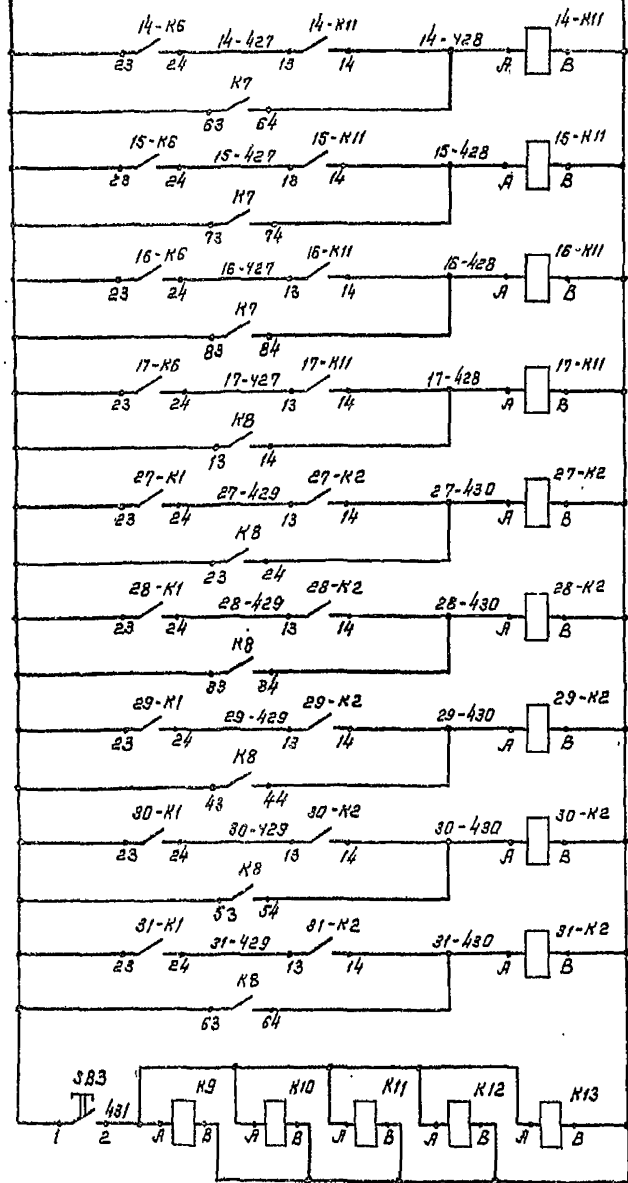 14-К6 14-427 14-К11 14-428 14-К11
23 24 13 14 А В
К7
63 64
15-К6 15-427 15-К11 15-428 15-К11
23 24 13 14 А В
К7
73 74
16-К6 16-427 16-К11 16-428 16-К11
23 24 13 14 А В
К7
83 84
17-К6 17-427 17-К11 17-428 17-К11
23 24 13 14 А В
К8
13 14
27-К1 27-429 27-К2 27-430 27-К2
23 24 13 14 А В
К8
23 24
28-К1 28-429 28-К2 28-430 28-К2
23 24 13 14 А В
К8
33 34
29-К1 29-429 29-К2 29-430 29-К2
23 24 13 14 А В
К8
43 44
30-К1 30-429 30-К2 30-430 30-К2
23 24 13 14 А В
К8
53 54
31-К1 31-429 31-К2 31-430 31-К2
23 24 13 14 А В
К8
63 64
SB3 431 К9 К10 К11 К12 К13
1 2 А В А В А В А В А В